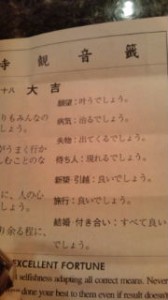 寺 観 音 籤
十八 大 吉
願望：叶うでしょう。
病気：治るでしょう。
失物：出てくるでしょう。
待ち人：現れるでしょう。
新築・引越：良いでしょう。
旅行：良いでしょう。
結婚・付き合い：すべて良い
でしょう。
りもみんなの
うまく行か
しむことのな
に、人の心
り余る程に、
EXCELLENT FORTUNE
selfishness adapting all correct means. Never
done your best to them even if result does